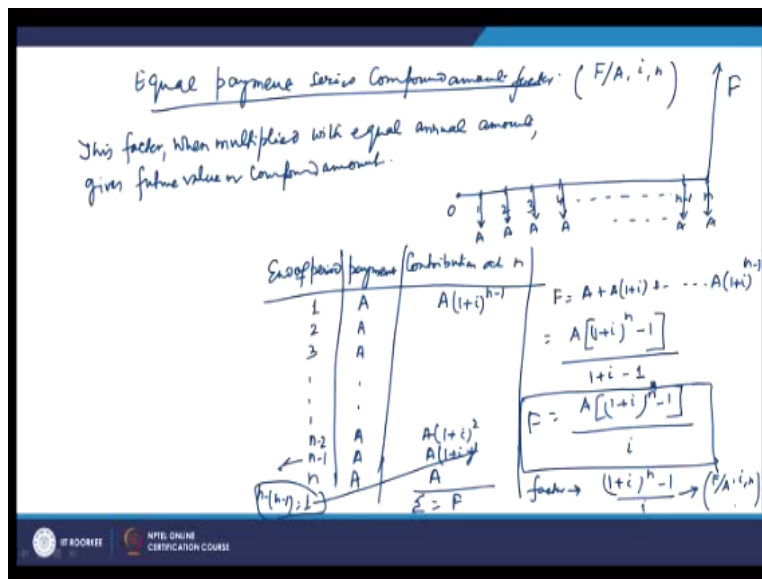 Equal payment series Compound amount factor. (F/A, i, n)
This factor, when multiplied with equal annual amount,
gives future value or Compound amount.
F
0 1 2 3 4 - - - - - - - n-1 n
A A A A - - - - - A A
End of period | payment | Contribution at n
1 A A(1+i)^{n-1}
2 A
3 A
n-2 A A(1+i)^2
n-1 A A(1+i)
n A A
n-(n-1)=1
Σ = F
F = A + A(1+i) + - ... A(1+i)^{n-1}
= A[(1+i)^n - 1] / 1+i-1
F = A[(1+i)^n - 1] / i
factor → (1+i)^n - 1 / i → (F/A, i, n)
IIT ROORKEE
NPTEL ONLINE
CERTIFICATION COURSE